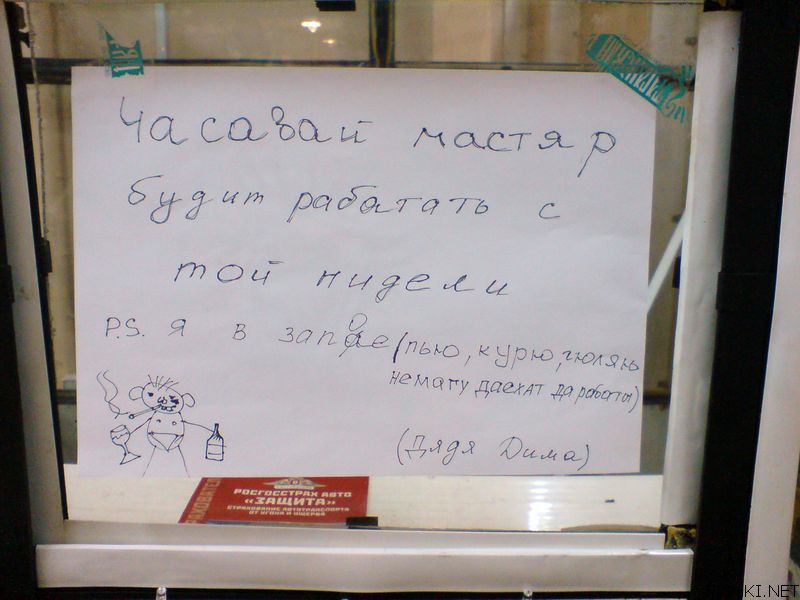 Часавай мастяр
будит рабатать с
той нидели
P.S. я в запае (пью, курю, гюляю
немагу даехат да работы)
(Дядя Дима)
РОСГОССТРАХ АВТО
«ЗАЩИТА»
СТРАХОВАНИЕ АВТОТРАНСПОРТА
ОТ УГОНА И УЩЕРБА
KI.NET